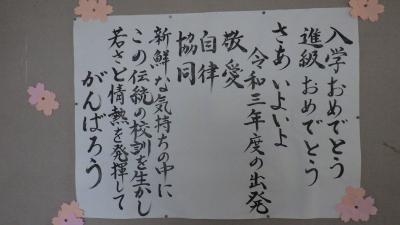 入学おめでとう
進級おめでとう
さあいよいよ
令和三年度の出発
敬愛
自律
協同
新鮮な気持ちの中に
この伝統の校訓を生かし
若さと情熱を発揮して
がんばろう